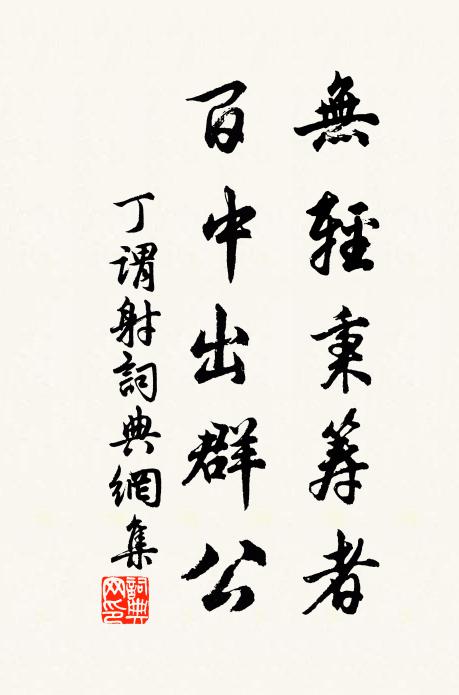 無輕秉筭者
百中出群公
丁謂射詞典網集
詞典網印